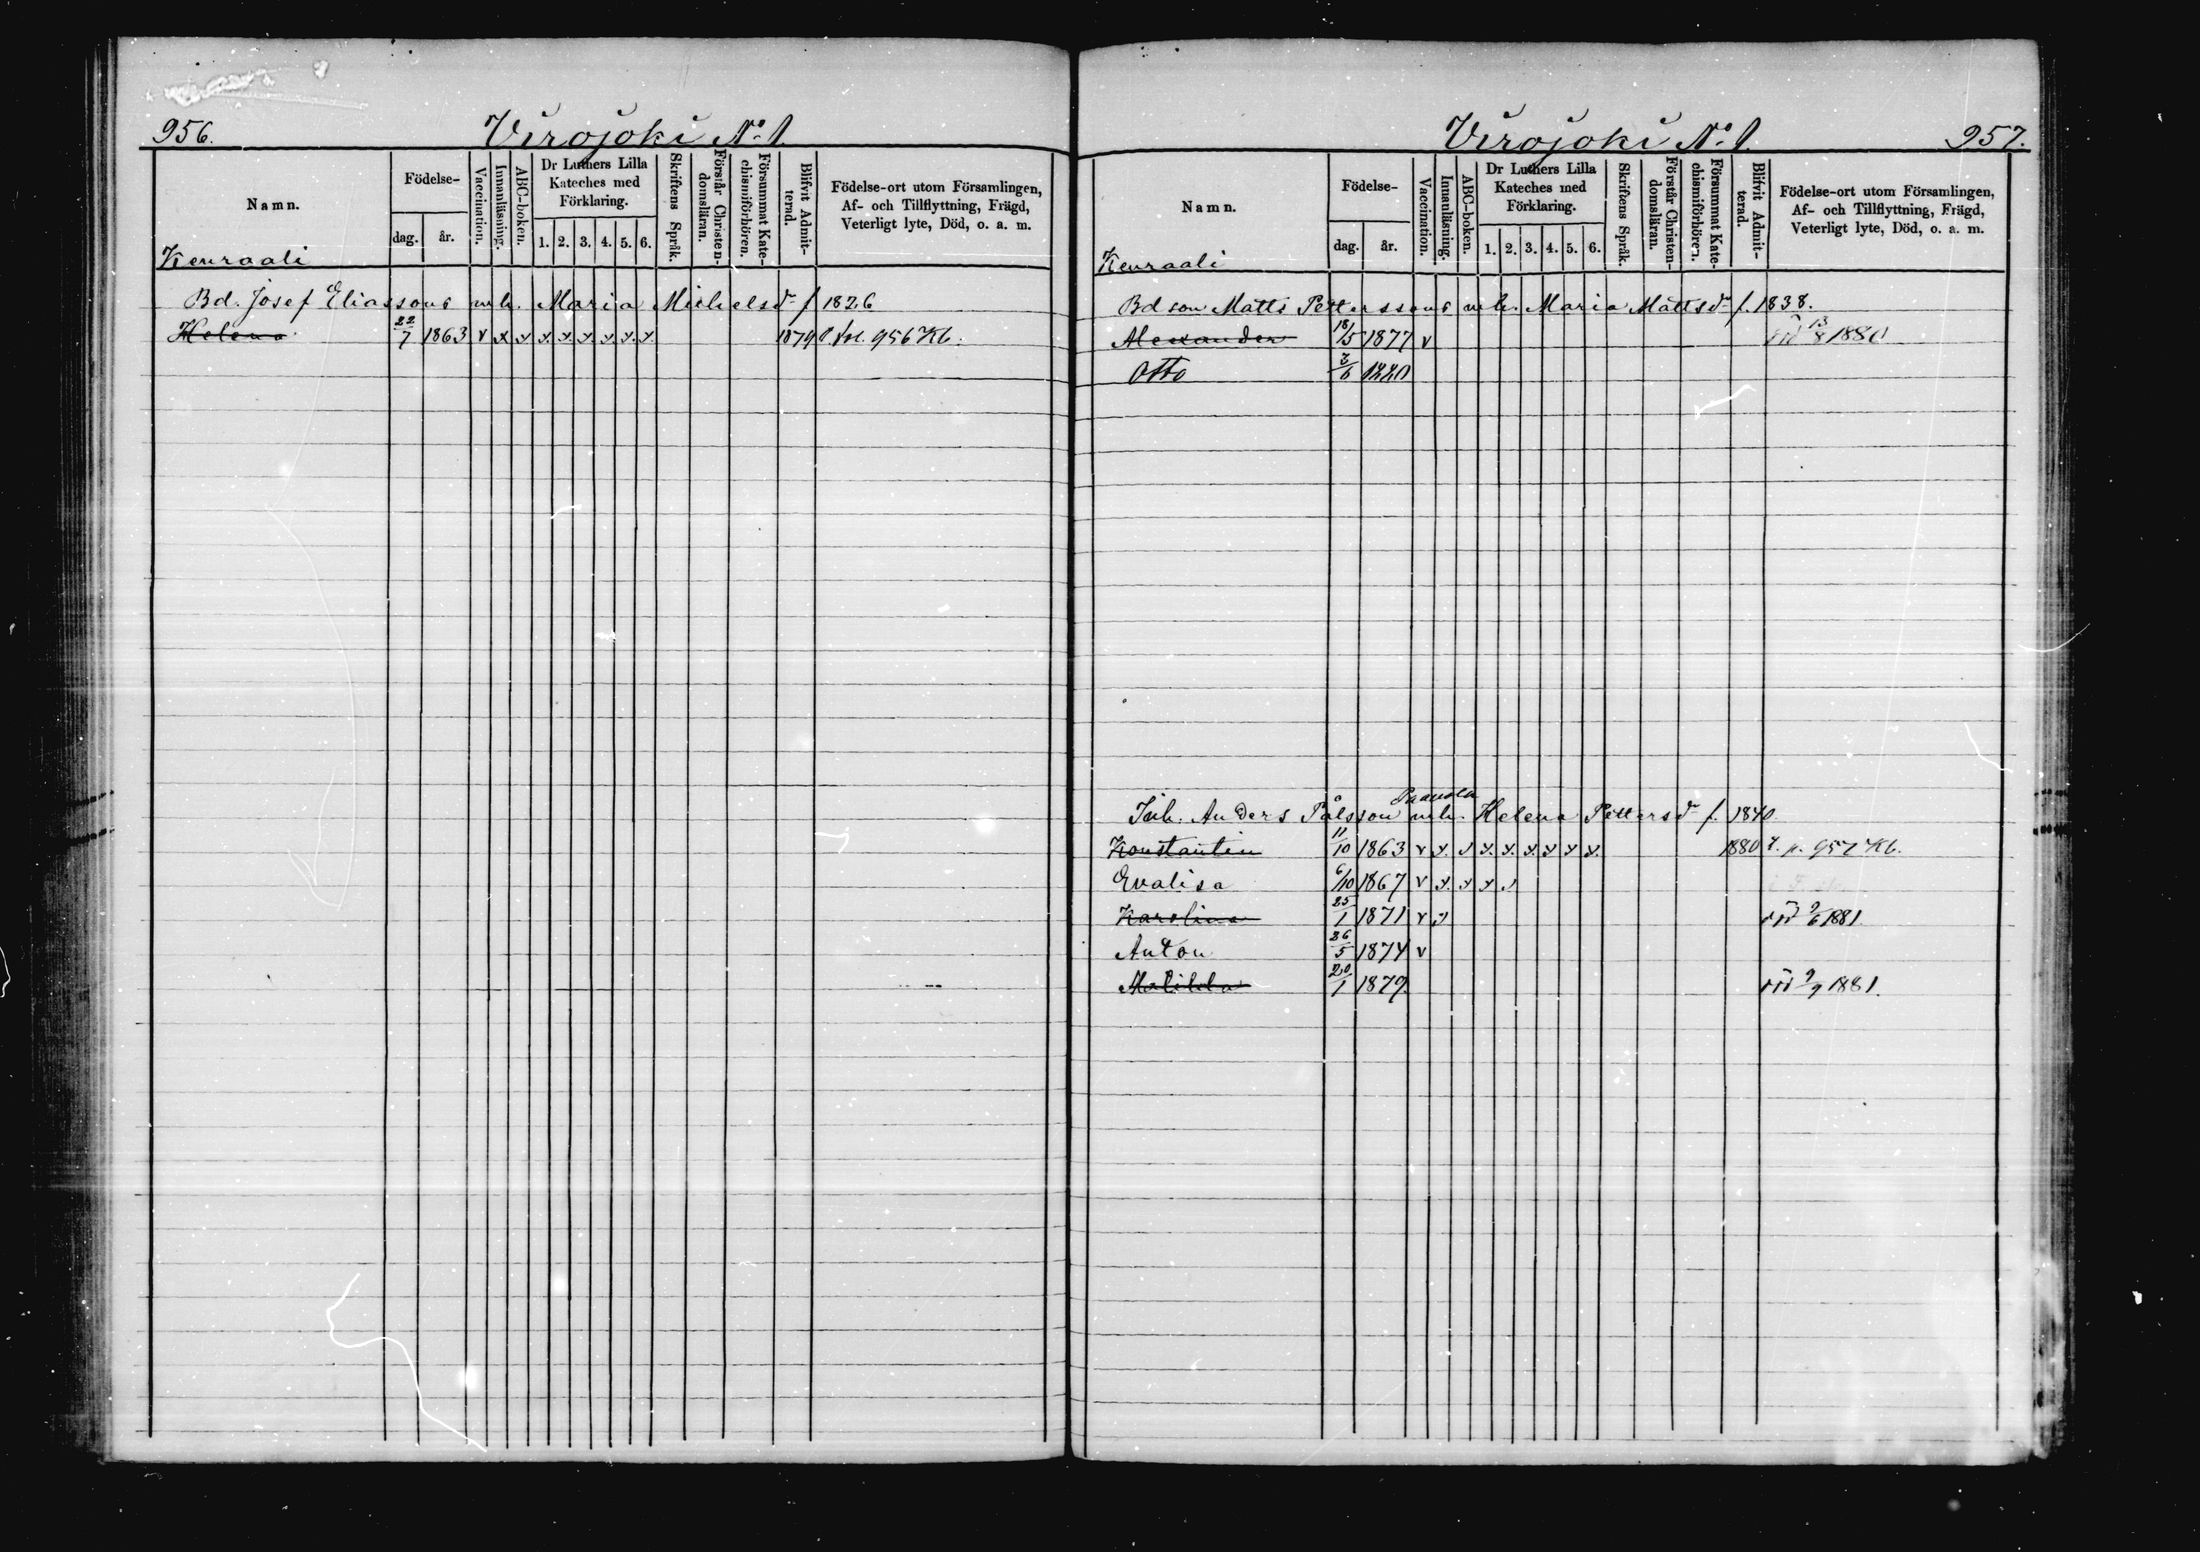 956.
Virojoki No 1.
Namn.
Födelse-
dag. år.
Vaccination.
Innanläsning.
ABC-boken.
Dr Luthers Lilla Kateches med Förklaring.
1. 2. 3. 4. 5. 6.
Skriftens Språk.
Förstår Christendomsläran.
Försummat Katechismiförhören.
Blifvit Admitterad.
Födelse-ort utom Församlingen,
Af- och Tillflyttning, Frägd,
Veterligt lyte, Död, o. a. m.
Kenraali
Bd. Josef Eliassons mh. Maria Michelsdr f 1826
Helena 22/7 1863 v x x x. x. x. x. x. x. 1879 956 Kb.
Virojoki No 1.
957.
Namn.
Födelse-
dag. år.
Vaccination.
Innanläsning.
ABC-boken.
Dr Luthers Lilla Kateches med Förklaring.
1. 2. 3. 4. 5. 6.
Skriftens Språk.
Förstår Christendomsläran.
Försummat Katechismiförhören.
Blifvit Admitterad.
Födelse-ort utom Församlingen,
Af- och Tillflyttning, Frägd,
Veterligt lyte, Död, o. a. m.
Kenraali
Bd son Matts Petterssons mh. Maria Mattsdr f. 1838.
Alexander 18/5 1877 v död 13/8 1880
Otto 3/6 1880
Paavola
Inh. Anders Pålsson mh. Helena Pettersdr f. 1840
Konstantin 11/10 1863 v x. v x. x. x. x x x. 1880 f. p. 957 Kb.
Evalisa 6/10 1867 v x. x x v
Karolina 25/1 1871 v v död 9/6 1881
Anton 26/5 1874 v
Matilda 20/1 1879. död 9/9 1881.